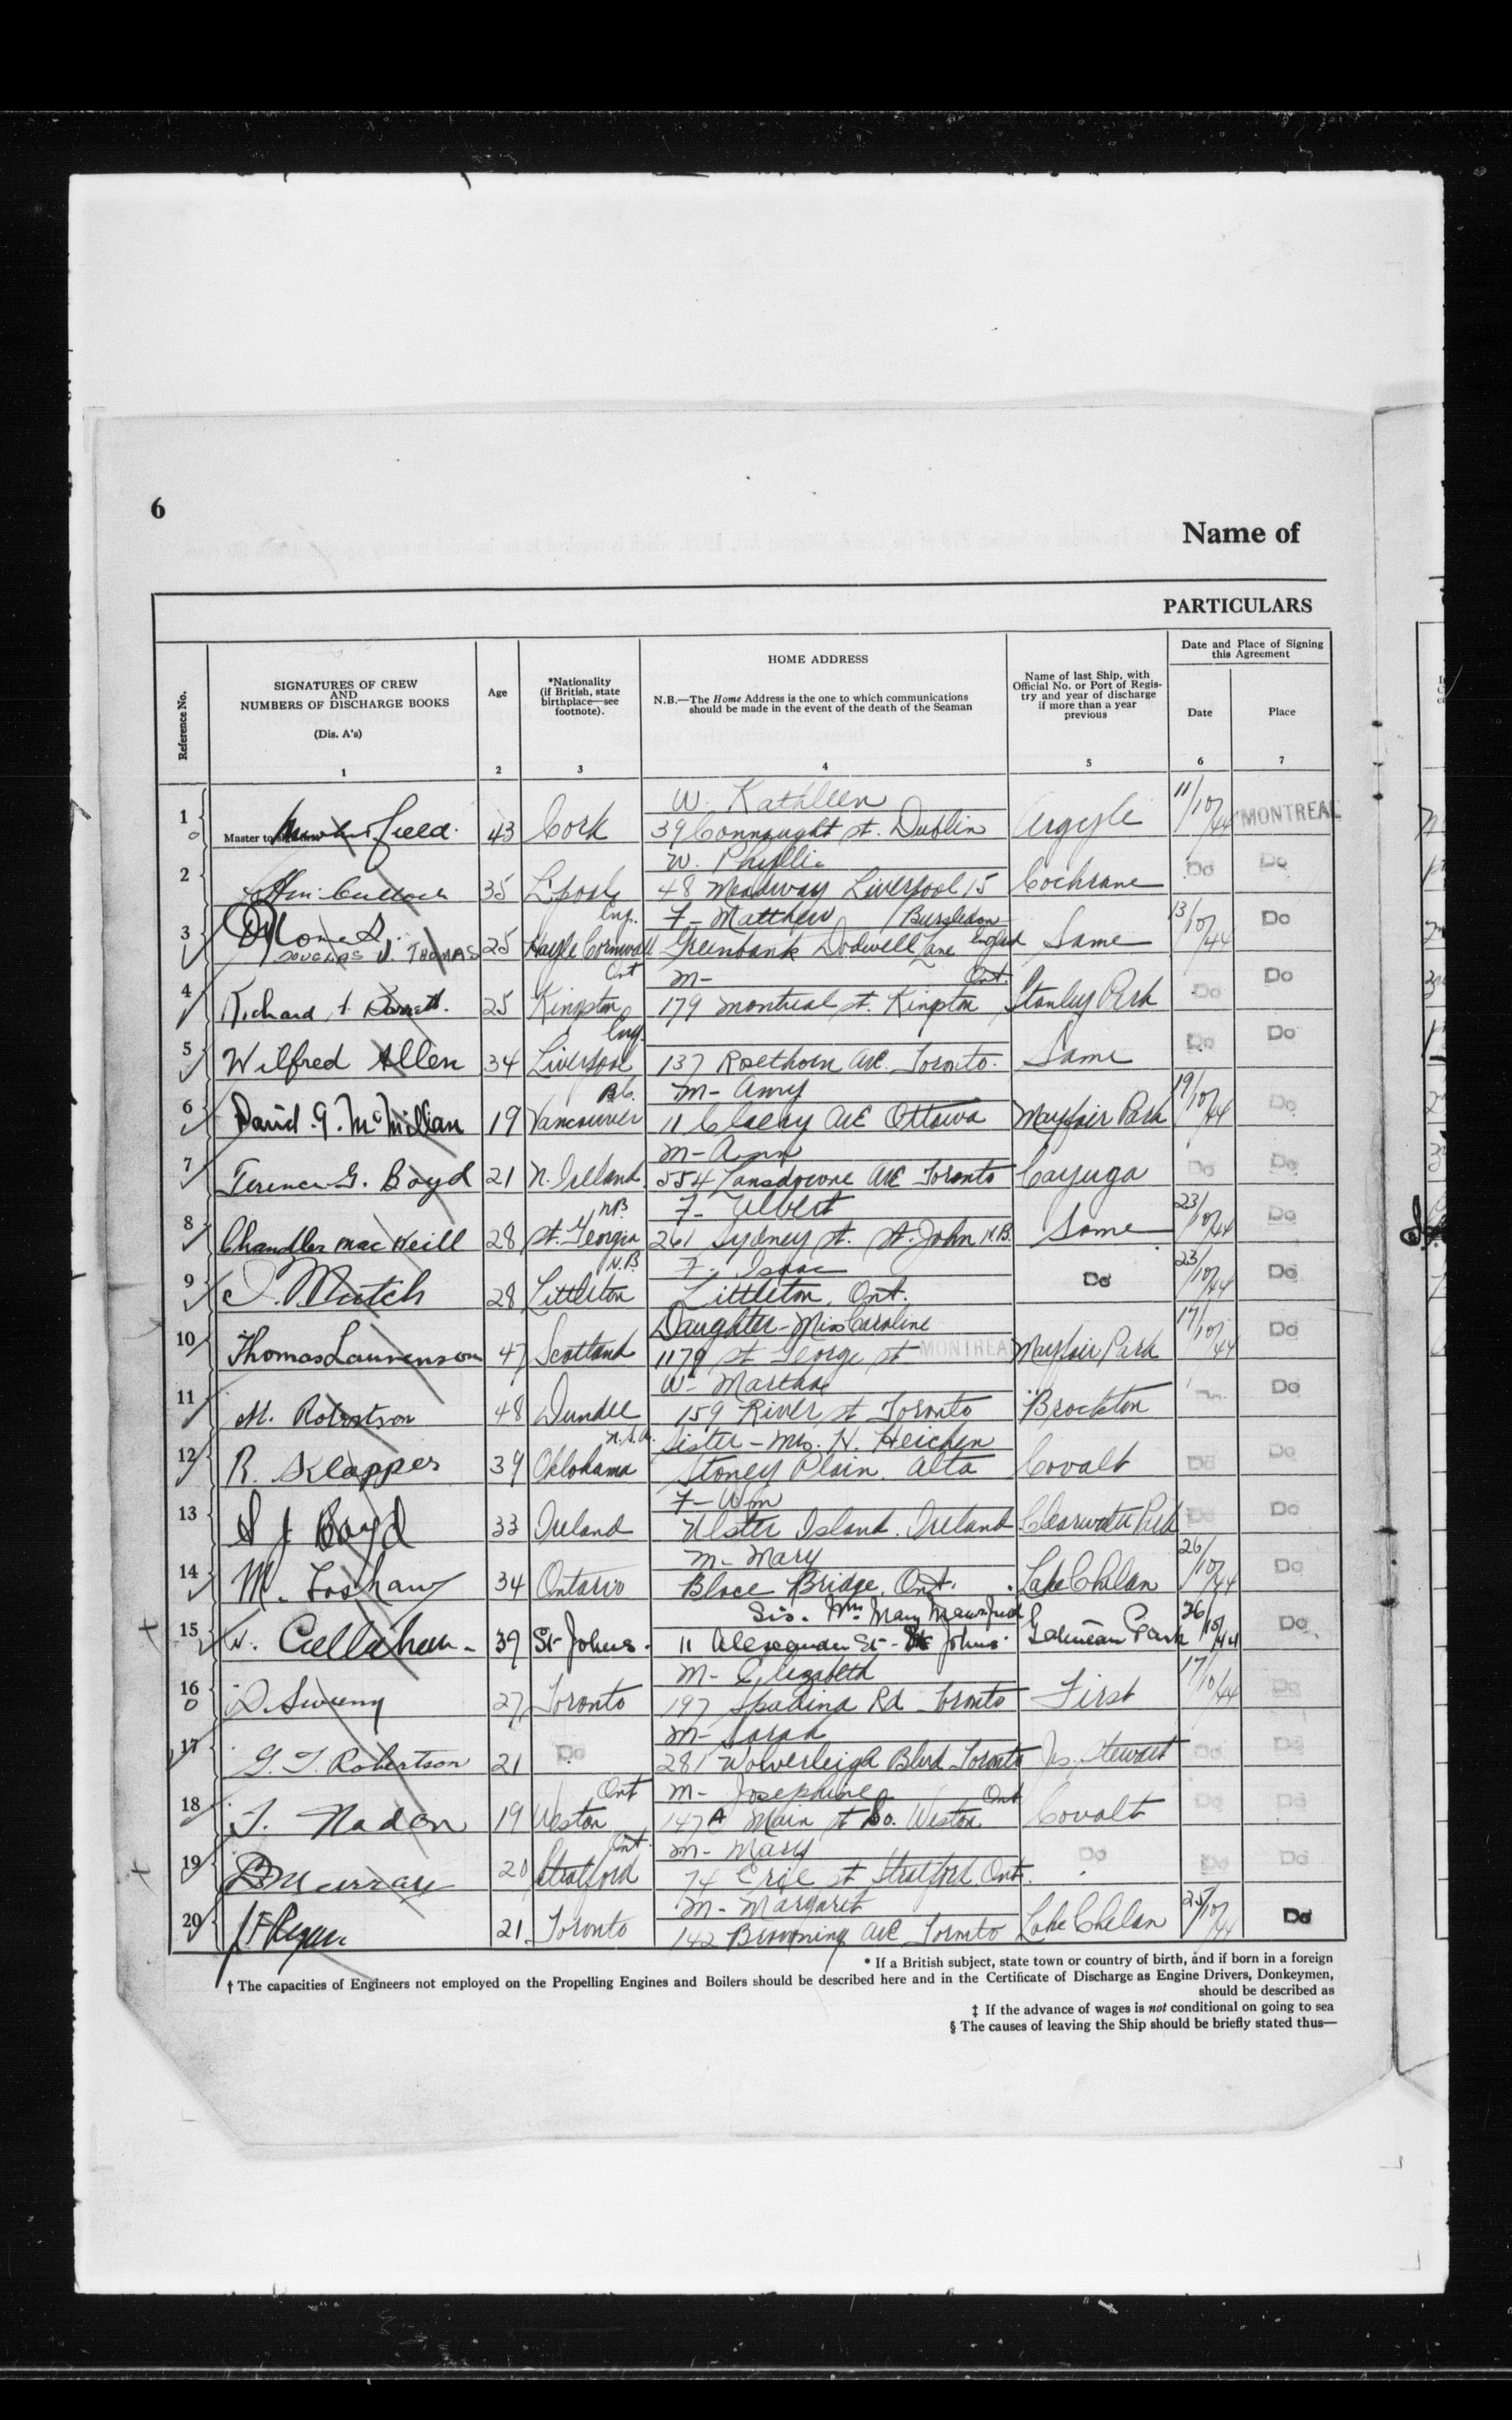 6
Name of
PARTICULARS
Reference No.
SIGNATURES OF CREW
AND
NUMBERS OF DISCHARGE BOOKS
(Dis. A's)
1
Age
2
*Nationality
(if British, state
birthplace—see
footnote).
3
HOME ADDRESS
N.B.—The Home Address is the one to which communications
should be made in the event of the death of the Seaman
4
Name of last Ship, with
Official No. or Port of Regis-
try and year of discharge
if more than a year
previous
5
Date and Place of Signing
this Agreement
Date
6
Place
7
W. Kathleen
1 Master to 43 Cork 39 Connaught St. Dublin Argyle 11/10/44 MONTREAL
W. Phyllis
2 35 L'pool 48 Meadway Liverpool 15 Cochrane Do Do
Eng. F- Matthew Bursledon
3 DOUGLAS J. THOMAS 25 Hayle Cornwall Greenbank Dodwell Lane England Same 13/10/44 Do
Ont M- Ont.
4 Richard 25 Kingston 179 Montreal St. Kingston Stanley Park Do Do
Eng.
5 Wilfred Allen 34 Liverpool 137 Rosethorn Ave. Toronto. Same Do Do
B.C. M- Amy
6 David G. McMillan 19 Vancouver 11 Ave Ottawa Mayfair Park 19/10/44 Do
M- Ann
7 Terence G. Boyd 21 N. Ireland 554 Lansdowne Ave Toronto Cayuga Do Do
N.B. F- Albert
8 Chandler MacNeill 28 St. George 261 Sydney St. St. John N.B. Same 23/10/44 Do
N.B. F. Isaac
9 I. Mutch 28 Littleton Littleton, Ont. Do 23/10/44 Do
Daughter- Miss Caroline
10 Thomas Laurenson 47 Scotland 1179 St George St MONTREAL Mayfair Park 17/10/44 Do
W- Martha
11 M. Robertson 48 Dundee 159 River St Toronto Brockton Do Do
U.S.A. Sister- Mrs. H. Heichen
12 R. Klapper 39 Oklohama Stoney Plain. Alta Covalt Do Do
F- Wm
13 S J Boyd 33 Ireland Ulster Island. Ireland Clearwater Park Do Do
M- Mary
14 M. Foshaw 34 Ontario Blace Bridge, Ont. Lake Chelan 26/10/44 Do
Sis. Mrs Mary
15 Callahan 39 St Johns. 11 Alexander St- St Johns. Park 26/10/44 Do
M- Elizabeth
16 Sweeny 27 Toronto 197 Spadina Rd Toronto First 17/10/44 Do
M- Sarah
17 G. T. Robertson 21 Do 281 Wolverleigh Blvd Toronto Jas. Stewart Do Do
Ont M- Josephine Ont
18 T. Nadon 19 Weston 147A Main St So. Weston Covalt Do Do
Ont. M- Mary
19 Murray 20 Stratford 74 Erie St Stratford, Ont. Do Do Do
M- Margaret
20 21 Toronto 142 Browning Ave Toronto Lake Chelan 25/10/44 Do
* If a British subject, state town or country of birth, and if born in a foreign
† The capacities of Engineers not employed on the Propelling Engines and Boilers should be described here and in the Certificate of Discharge as Engine Drivers, Donkeymen,
should be described as
‡ If the advance of wages is not conditional on going to sea
§ The causes of leaving the Ship should be briefly stated thus—